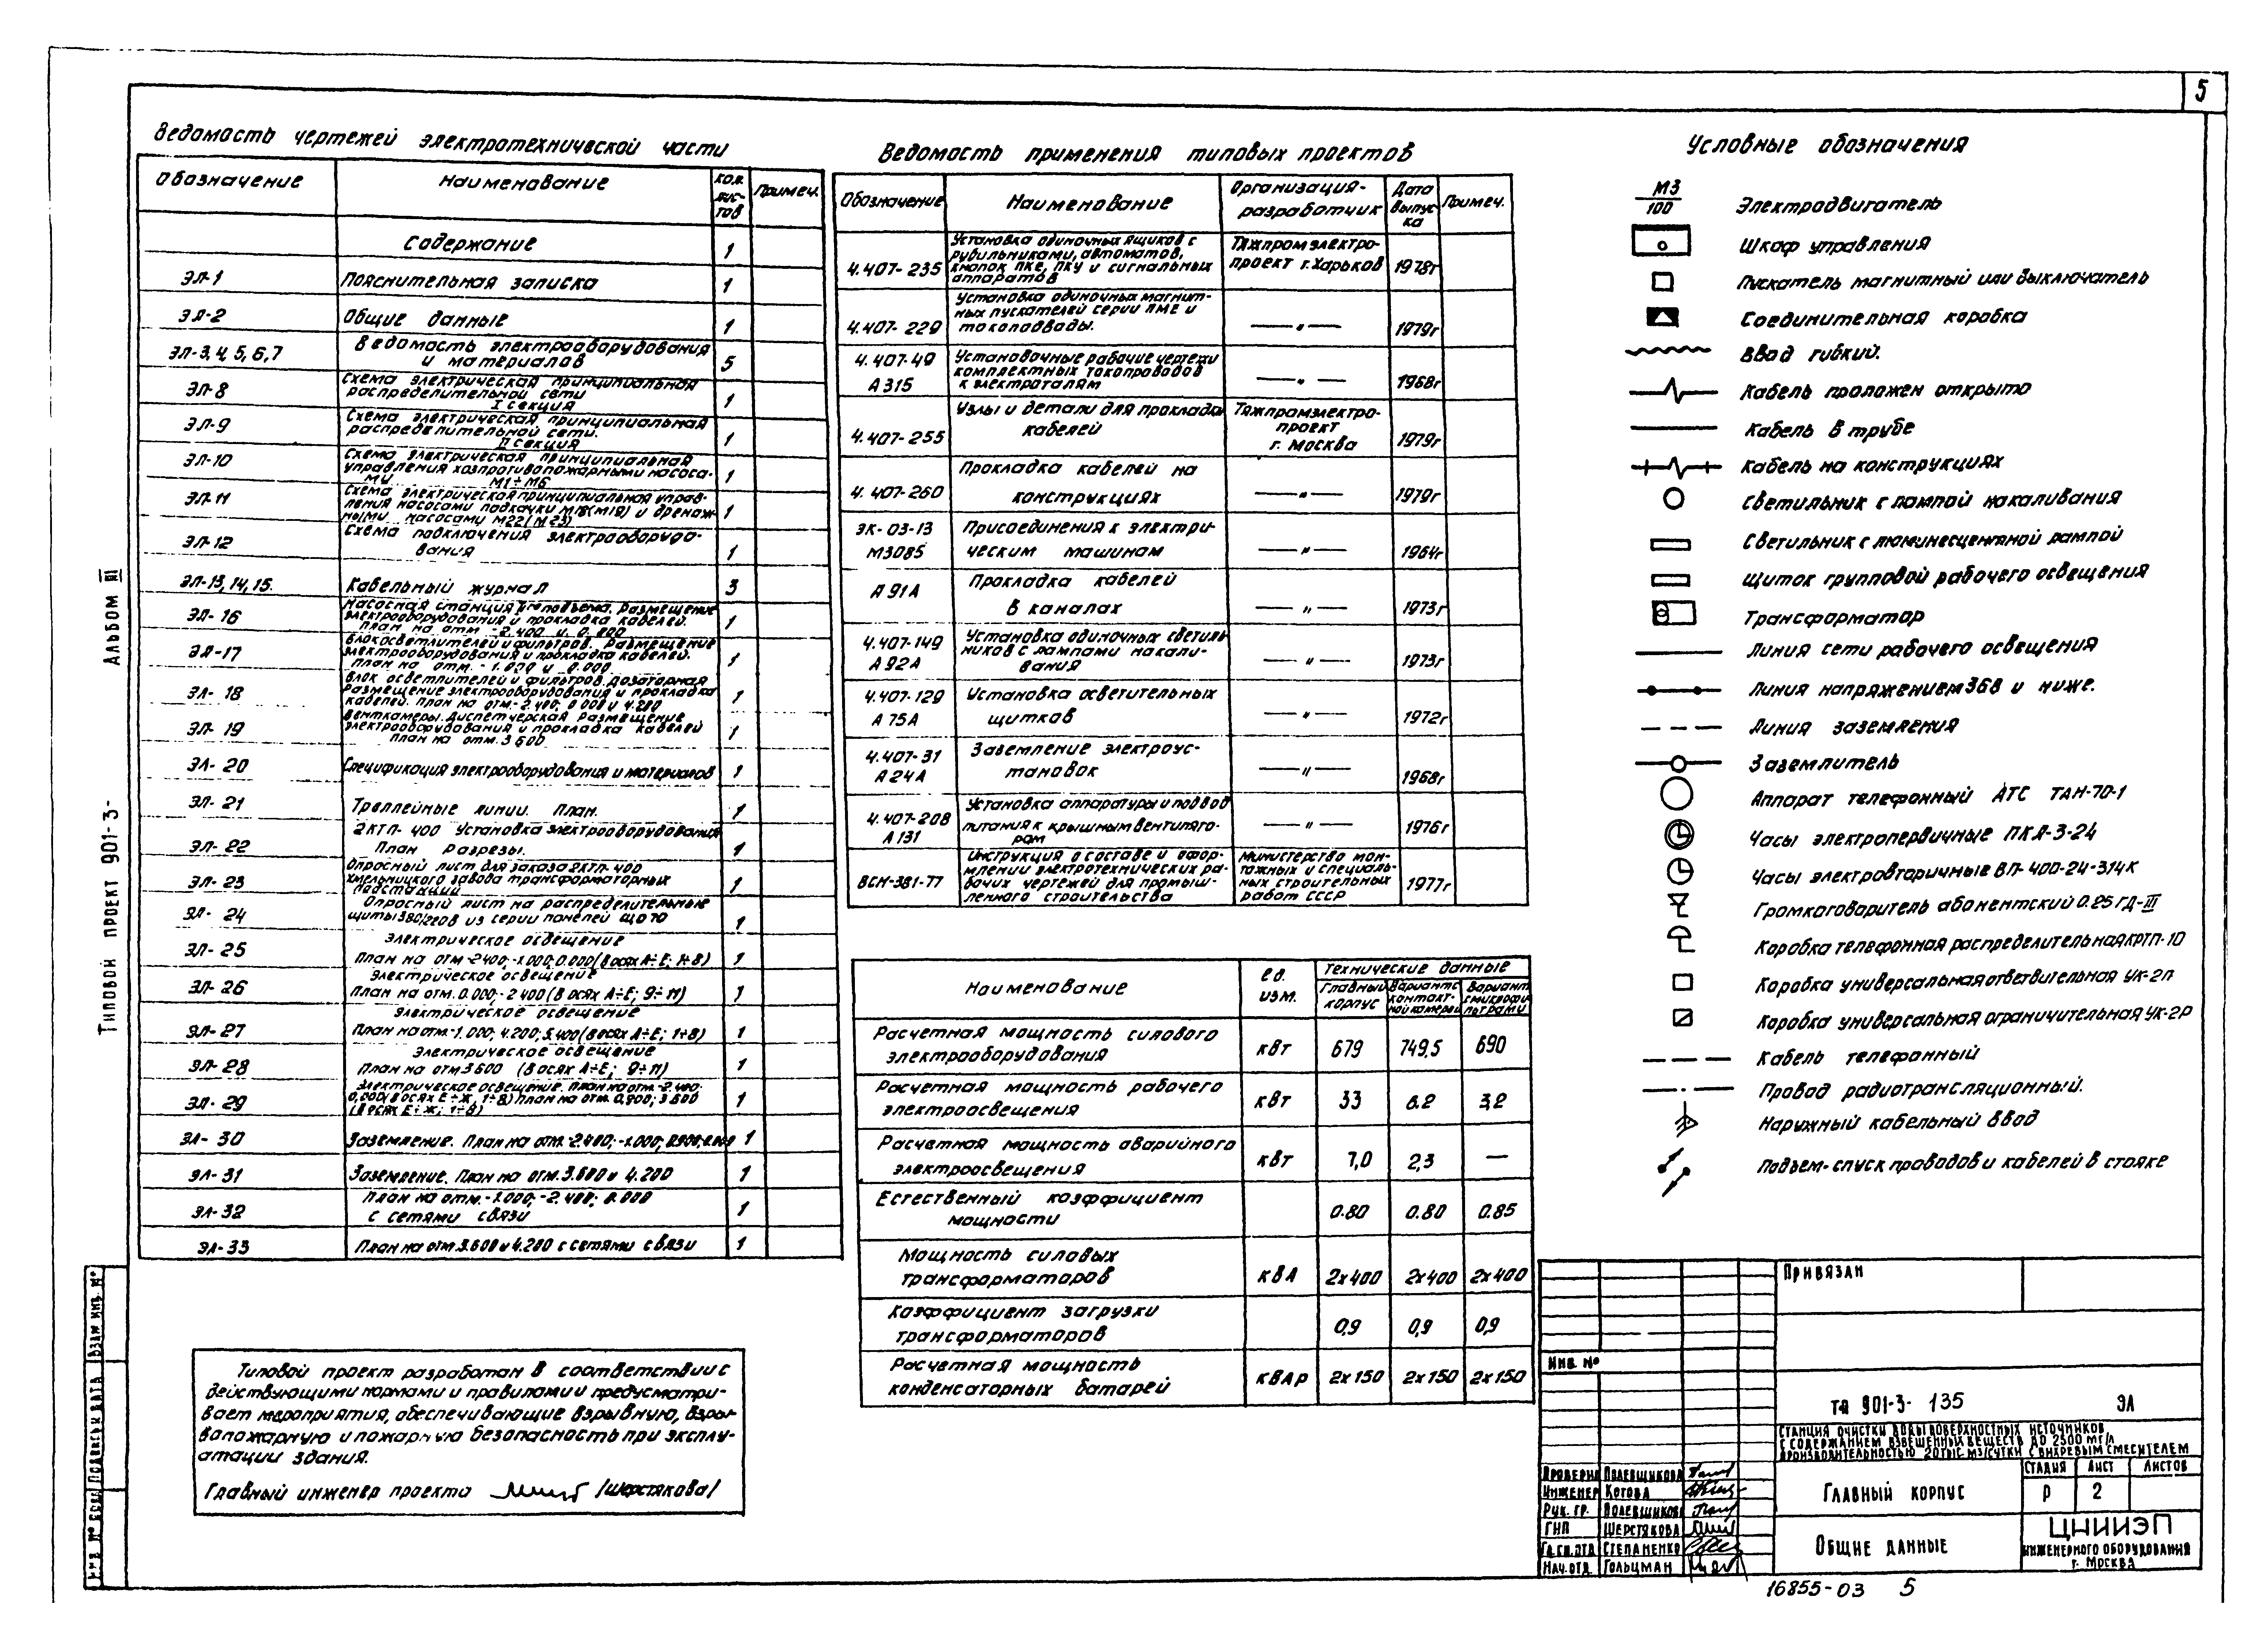 5
Ведомость чертежей электротехнической части
Обозначение Наименование кол. лис-тов Примеч.
Содержание 1
ЭЛ-1 Пояснительная записка 1
ЭЛ-2 Общие данные 1
ЭЛ-3,4,5,6,7 Ведомость электрооборудования
и материалов 5
ЭЛ-8 Схема электрическая принципиальная
распределительной сети
I секция 1
ЭЛ-9 Схема электрическая принципиальная
распределительной сети.
II секция 1
ЭЛ-10 Схема электрическая принципиальная
управления хозпротивопожарными насоса-
ми М1÷М6 1
ЭЛ-11 Схема электрическая принципиальная управ-
ления насосами подкачки М18(М19) и дренаж-
ными насосами М22(М23) 1
ЭЛ-12 Схема подключения электрооборудо-
вания 1
ЭЛ-13,14,15. Кабельный журнал 3
ЭЛ-16 Насосная станция подъема. Размещение
электрооборудования и прокладка кабелей.
План на отм. -2.400 и 0.000 1
ЭЛ-17 Блок осветлителей и фильтров. Размещение
электрооборудования и прокладка кабелей.
план на отм. -1.000 и 0.000 1
ЭЛ-18 Блок осветлителей и фильтров. Дозаторная
Размещение электрооборудования и прокладка
кабелей. план на отм.-2.400; 0.000 и 4.200 1
ЭЛ-19 Венткамеры. Диспетчерская Размещение
электрооборудования и прокладка кабелей
План на отм. 3600 1
ЭЛ-20 Спецификация электрооборудования и материалов 1
ЭЛ-21 Троллейные линии. План. 1
ЭЛ-22 2КТП-400 Установка электрооборудования
План Разрезы. 1
ЭЛ-23 Опросный лист для заказа 2КТП-400
Хмельницкого завода трансформаторных
подстанций 1
ЭЛ-24 Опросный лист на распределительные
щиты 380/220в из серии панелей ЩО70 1
ЭЛ-25 Электрическое освещение
План на отм -2400; -1.000; 0.000 (в осях А÷Е; 1÷8) 1
ЭЛ-26 Электрическое освещение
План на отм. 0.000; -2 400 (в осях А÷Е; 9÷11) 1
ЭЛ-27 Электрическое освещение
План на отм.-1.000; 4.200; 5.400 (в осях А÷Е; 1÷8) 1
ЭЛ-28 Электрическое освещение
План на отм 3 600 (в осях А÷Е; 9÷11) 1
ЭЛ-29 Электрическое освещение. План на отм.-2.400;
0,000(в осях Е÷Ж, 1÷8) план на отм. 0,900; 3 600
(в осях Е÷Ж; 1÷8) 1
ЭЛ-30 Заземление. План на отм.-2.400; -1.000; 1
ЭЛ-31 Заземление. План на отм. 3.600 и 4.200 1
ЭЛ-32 План на отм.-1.000; -2.400; 0.000
с сетями связи 1
ЭЛ-33 План на отм. 3.600 и 4.200 с сетями связи 1
Типовой проект разработан в соответствии с
действующими нормами и правилами и предусматри-
вает мероприятия, обеспечивающие взрывную, взры-
вопожарную и пожарную безопасность при эксплу-
атации здания.
Главный инженер проекта /Шерстякова/
Ведомость применения типовых проектов
Обозначение Наименование Организация-разработчик Дата выпуска Примеч.
4.407-235 Установка одиночных ящиков с
рубильниками, автоматов,
кнопок ПКЕ, ПКУ и сигнальных
аппаратов Тяжпромэлектро-
проект г.Харьков 1978г
4.407-229 Установка одиночных магнит-
ных пускателей серии ПМЕ и
токоподводы. —"— 1979г
4.407-49
А315 Установочные рабочие чертежи
комплектных токопроводов
к электроталям —"— 1968г
4.407-255 Узлы и детали для прокладки
кабелей Тяжпромэлектро-
проект
г. Москва 1979г
4.407-260 Прокладка кабелей на
конструкциях —"— 1979г
ЭК-03-13
М3085 Присоединения к электри-
ческим машинам —"— 1964г
А91А Прокладка кабелей
в каналах —"— 1973г
4.407-149
А92А Установка одиночных светиль
ников с лампами накали-
вания —"— 1973г
4.407-129
А75А Установка осветительных
щитков —"— 1972г
4.407-31
А24А Заземление электроус-
тановок —"— 1968г
4.407-208
А131 Установка аппаратуры и подвод
питания к крышным вентилято-
рам —"— 1976г
ВСН-381-77 Инструкция о составе и офор-
млении электротехнических ра-
бочих чертежей для промыш-
ленного строительства Министерство мон-
тажных и специаль-
ных строительных
работ СССР 1977г
Наименование ед. изм. Технические данные
Главный корпус Вариант с контакт-ной камерой Вариант с микрофильтрами
Расчетная мощность силового
электрооборудования квт 679 749,5 690
Расчетная мощность рабочего
электроосвещения квт 33 6.2 3,2
Расчетная мощность аварийного
электроосвещения квт 7,0 2,3 —
Естественный коэффициент
мощности 0.80 0.80 0.85
Мощность силовых
трансформаторов кВА 2х400 2х400 2х400
Коэффициент загрузки
трансформаторов 0,9 0,9 0,9
Расчетная мощность
конденсаторных батарей кВАр 2х150 2х150 2х150
Условные обозначения
М3
100 Электродвигатель
Шкаф управления
Пускатель магнитный или выключатель
Соединительная коробка
Ввод гибкий.
Кабель проложен открыто
Кабель в трубе
Кабель на конструкциях
Светильник с лампой накаливания
Светильник с люминесцентной лампой
Щиток групповой рабочего освещения
Трансформатор
Линия сети рабочего освещения
Линия напряжением 36В и ниже.
Линия заземления
Заземлитель
Аппарат телефонный АТС ТАН-70-1
Часы электропервичные ПКЛ-3-24
Часы электровторичные ВП-400-24-314К
Громкоговоритель абонентский 0.25 ГД-III
Коробка телефонная распределительная КРТП-10
Коробка универсальная ответвительная УК-2П
Коробка универсальная ограничительная УК-2Р
Кабель телефонный
Провод радиотрансляционный.
Наружный кабельный ввод
Подъем-спуск проводов и кабелей в стояке
Привязан
Инв. №
ТП 901-3-135 ЭЛ
Станция очистки воды поверхностных источников,
с содержанием взвешенных веществ до 2500 мг/л
производительностью 20тыс м3/сутки с вихревым смесителем
Проверил Полевщикова
Инженер Котова
Рук. гр. Полевщикова
ГИП Шерстякова
Гл.сп.отд Степаненко
Нач.отд Гольцман
Главный корпус
Стадия Лист Листов
Р 2
Общие данные
ЦНИИЭП
инженерного оборудования
г. Москва
16855-03 5
Типовой проект 901-3- Альбом III
Инв. № подл. Подпись и дата Взам инв. №